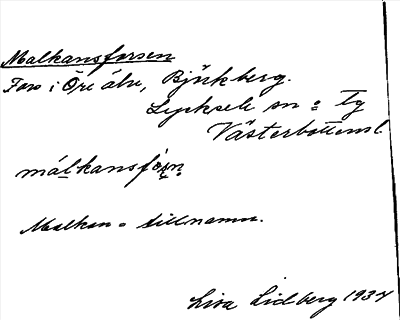 Malkansforsen
Fors i Öre älv, Björkberg.
Lycksele sn o Tg
Västerbottens l.
málkansfórn
Malkan = tillnamn.
Lisa Lidberg 1934